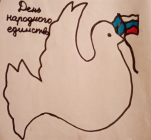 День
народного
единства